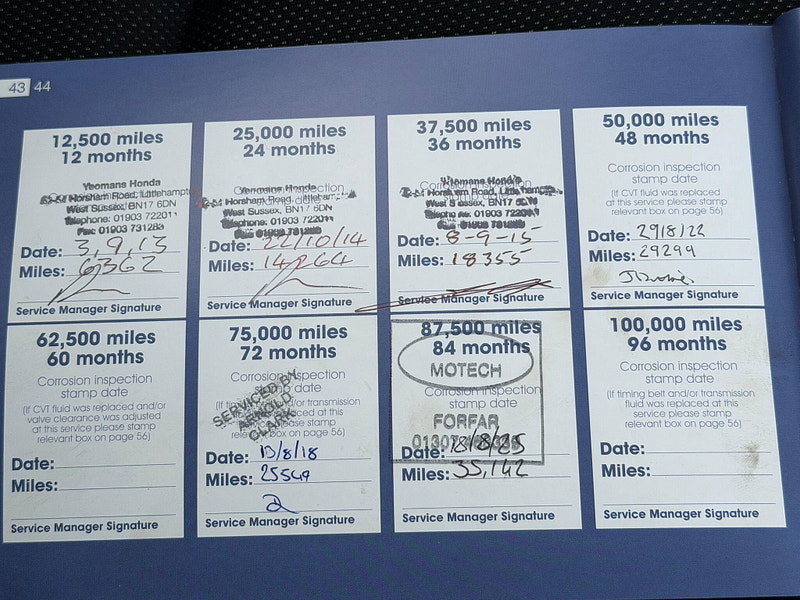 43 44
12,500 miles
12 months
Yeomans Honda
Horsham Road, Littlehampton
West Sussex, BN17 6DN
Telephone: 01903 722011
Fax: 01903 731283
Date: 3,9,13
Miles: 6362
Service Manager Signature
25,000 miles
24 months
Yeomans Honda
Horsham Road, Littlehampton
West Sussex, BN17 6DN
Telephone: 01903 722011
Fax: 01903 731283
Date: 22/10/14
Miles: 14264
Service Manager Signature
37,500 miles
36 months
Yeomans Honda
Horsham Road, Littlehampton
West Sussex, BN17 6DN
Telephone: 01903 722011
Fax: 01903 731283
Date: 8-9-15
Miles: 18355
Service Manager Signature
50,000 miles
48 months
Corrosion inspection
stamp date
(If CVT fluid was replaced
at this service please stamp
relevant box on page 56)
Date: 29/8/22
Miles: 29299
Service Manager Signature
62,500 miles
60 months
Corrosion inspection
stamp date
(If CVT fluid was replaced and/or
valve clearance was adjusted
at this service please stamp
relevant box on page 56)
Date:
Miles:
Service Manager Signature
75,000 miles
72 months
Corrosion inspection
stamp date
(If timing belt and/or transmission
fluid was replaced at this
service please stamp
relevant box on page 56)
SERVICED BY
ARNOLD
CLARK
Date: 13/8/18
Miles: 25549
Service Manager Signature
87,500 miles
84 months
MOTECH
Corrosion inspection
stamp date
FORFAR
Date: 18/8/25
Miles: 35,142
Service Manager Signature
100,000 miles
96 months
Corrosion inspection
stamp date
(If timing belt and/or transmission
fluid was replaced at this
service please stamp
relevant box on page 56)
Date:
Miles:
Service Manager Signature